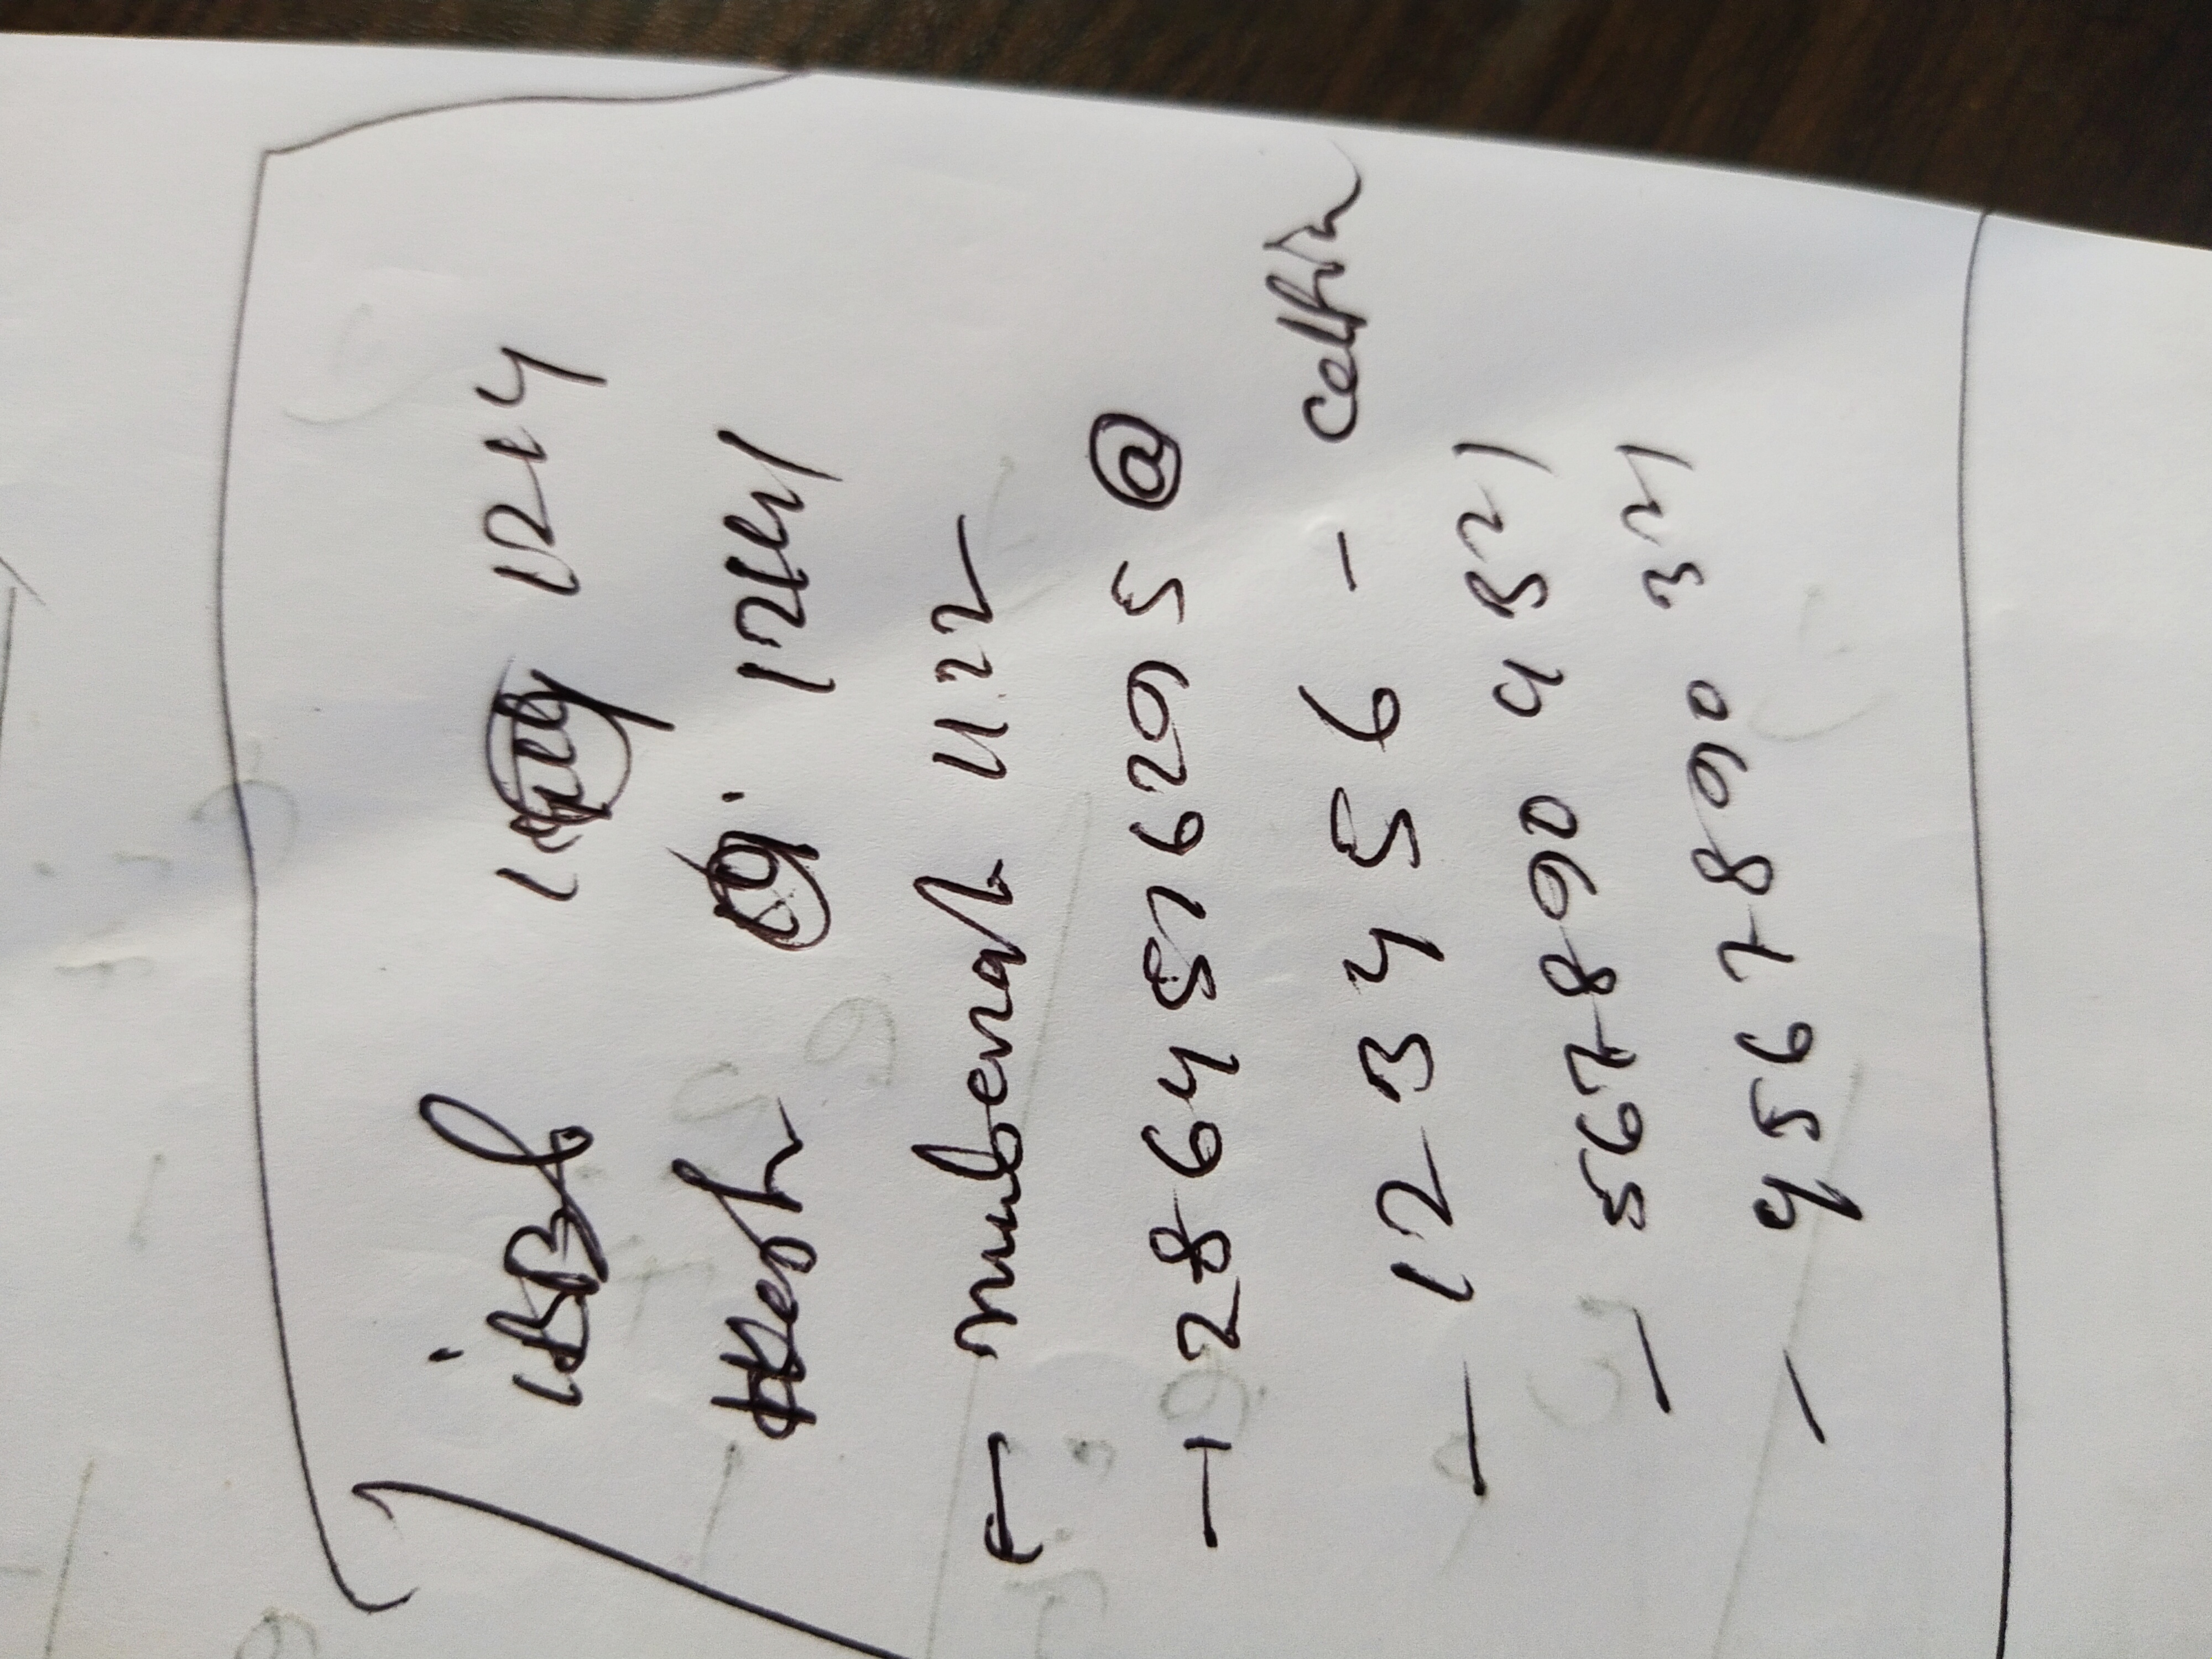 iBBL 1214
mubarak 1122
→ 2864576295 @
- 123456 - cellfin
- 567890 4321
- 4567890 321